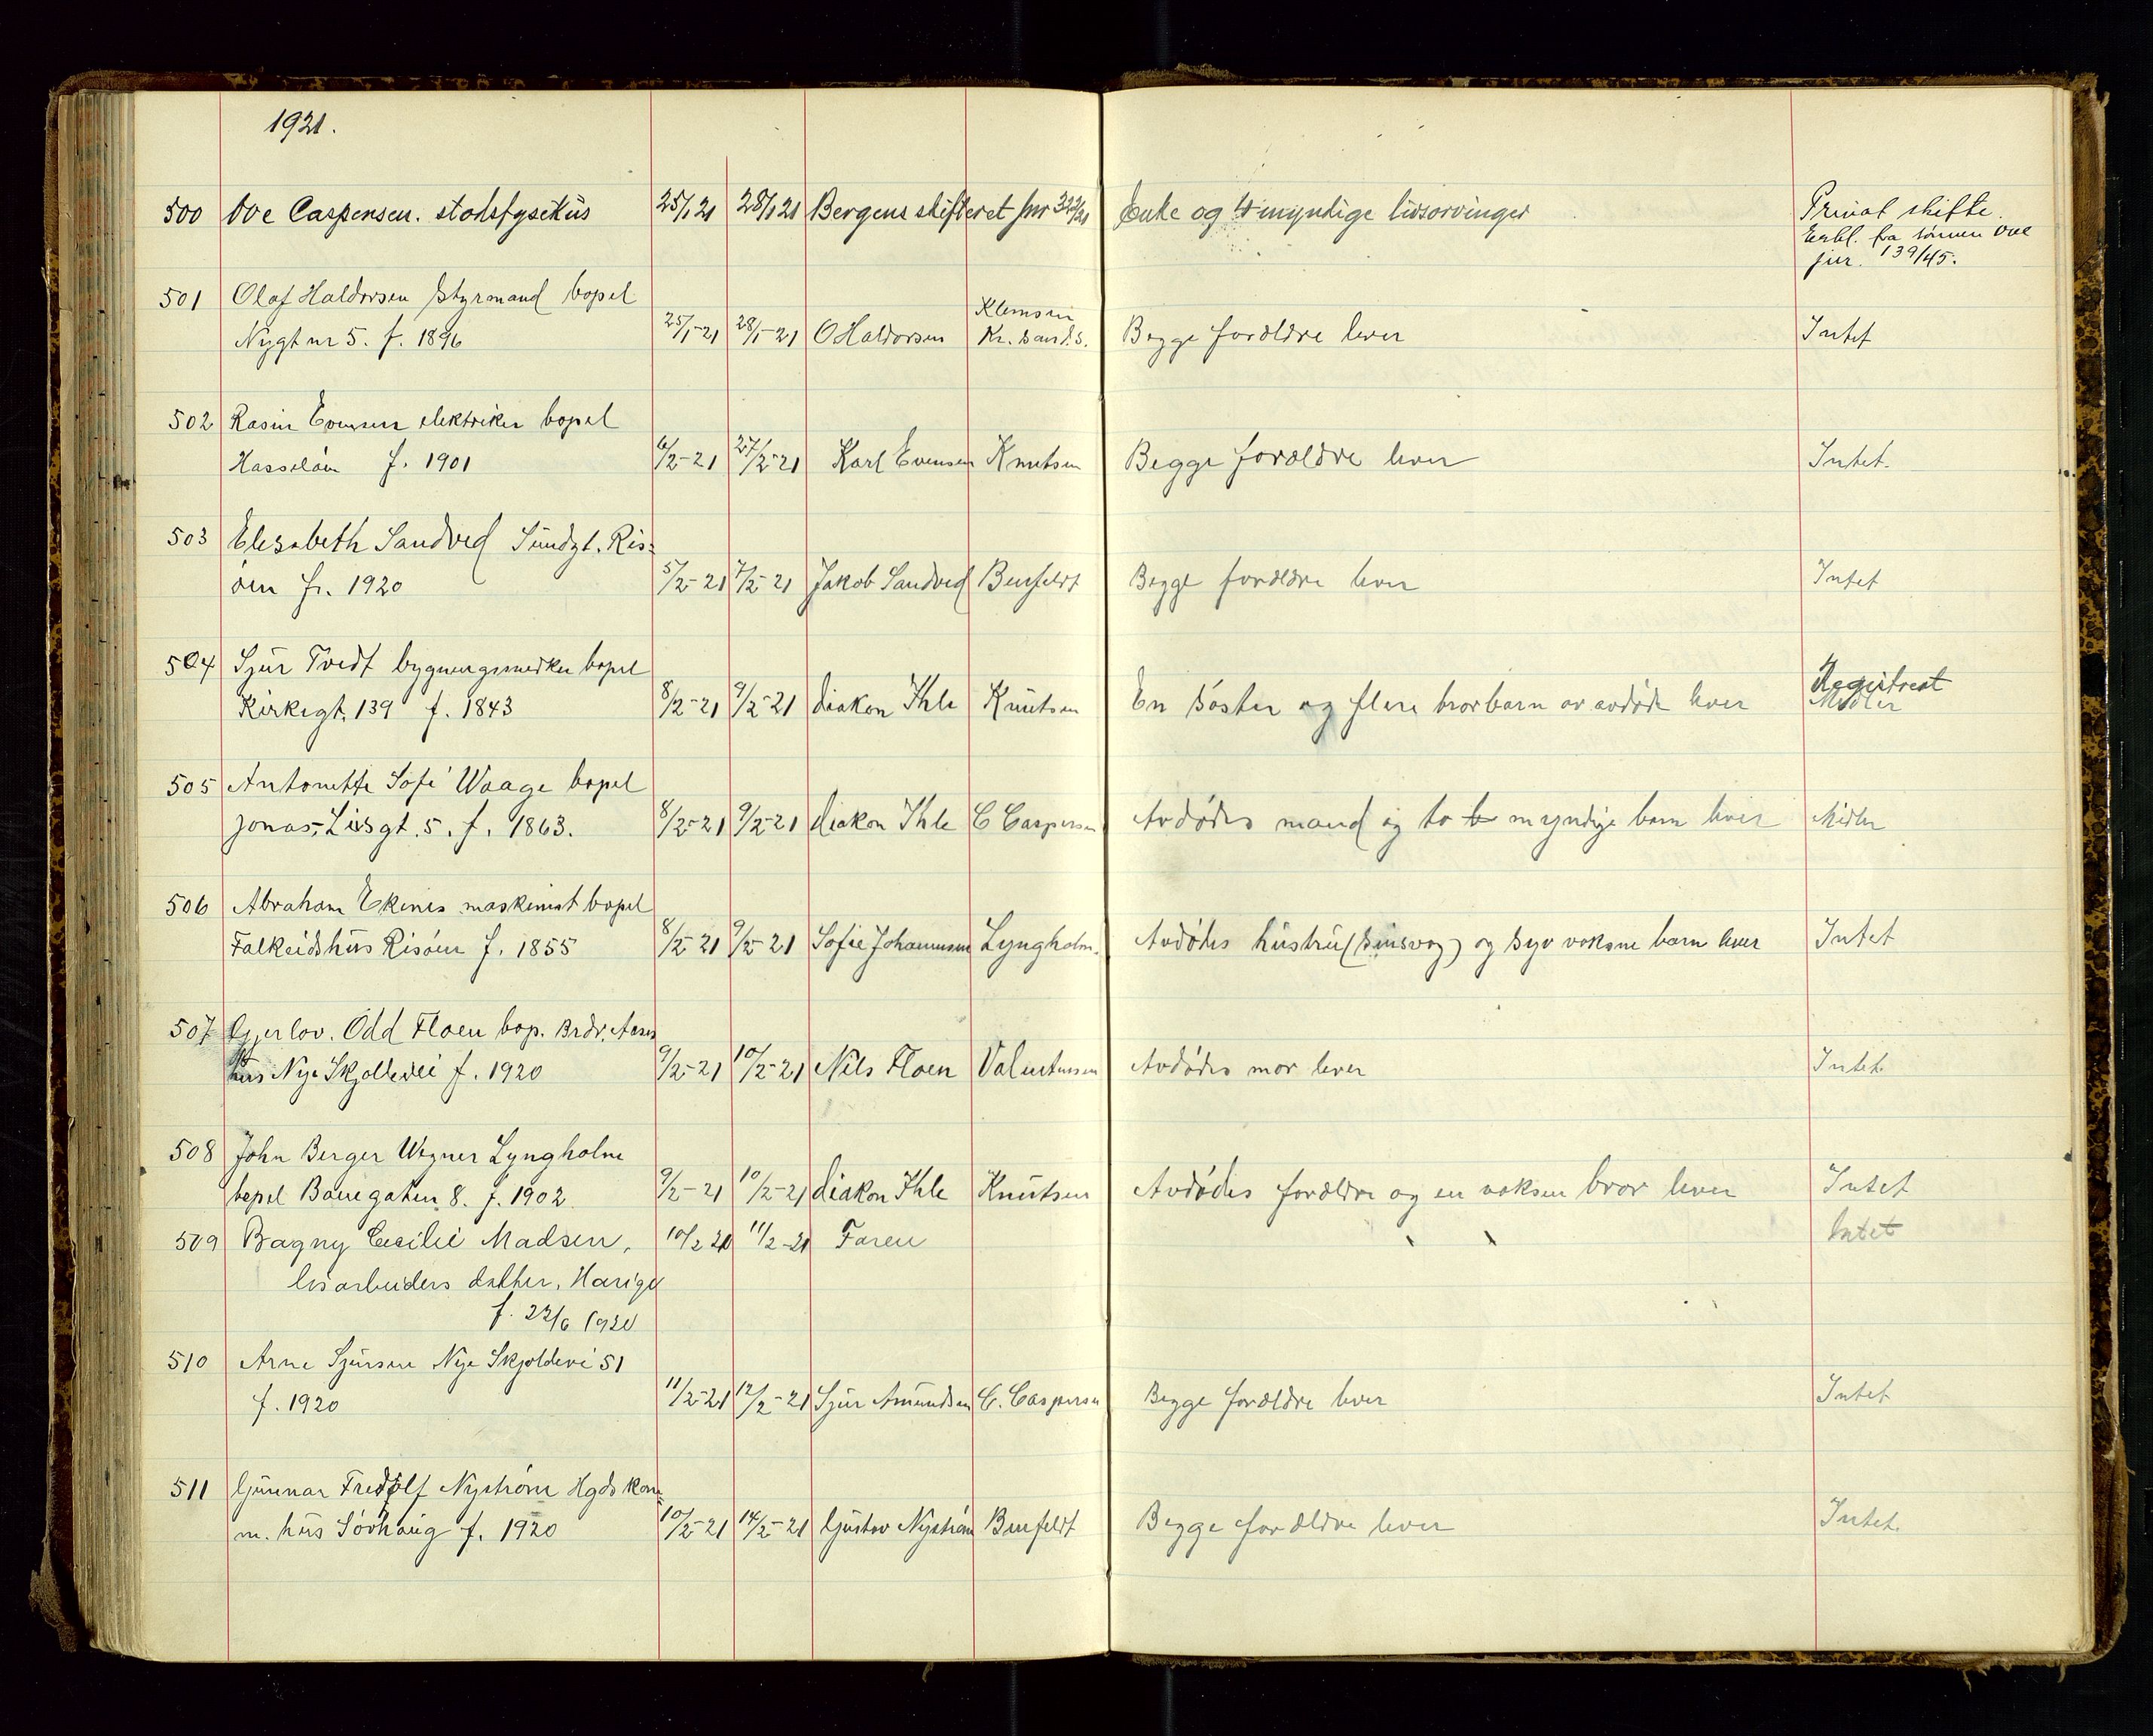 1921.
500 Ove Caspersen. stadsfysikus 25/1 21 28/1 21 Bergens skifteret jnr 322/21 Enke og 4 myndige livsarvinger Privat skifte.
Erkl. fra sönnen Ove
jur. 139/45.
501 Olaf Haldorsen styrmand bopel
Nygt nr 5. f. 1896 25/1-21 28/1-21 O Haldorsen Klemsen
Kr. sand. S. Begge forældre lever Intet
502 Evensen elektriker bopel
Hasseløen f. 1901 6/2-21 27/2-21 Karl Evensen Knutsen Begge forældre lever Intet.
503 Elisabeth Sandved Sundgt. Ris-
öen f. 1920 5/2-21 7/2-21 Jakob Sandved Begge forældre lever Intet
504 Sjur Tvedt bygningssnedker bopel
Kirkegt. 139 f. 1843 8/2-21 9/2-21 diakon Ihle Knutsen En söster og flere brorbarn av avdöde lever Registrert
Midler
505 Antonette Sofi Waage bopel
Jonas Liesgt. 5. f. 1863. 8/2-21 9/2-21 diakon Ihle C Caspersen Avdödes mand og to myndige barn lever Midler
506 Abraham Ekenes maskinist bopel
Falkeidshus Risöen f. 1855 8/2-21 9/2-21 Sofie Johannesen Lyngholm. Avdödes hustru (sinsvag) og syv voksne barn lever Intet
507 Gjerlov. Odd Floen bop. Brdr.
hus Nye Skjoldevei f. 1920 9/2-21 10/2-21 Nils Floen Valentinsen Avdödes mor lever Intet.
508 John Berger Wegner Lyngholm
bopel Bauegaten 8. f. 1902 9/2-21 10/2-21 diakon Ihle Knutsen Avdödes forældre og en voksen bror lever Intet
509 Bagny Cecilie Madsen, 10/2 21 11/2-21 Faren Intet
lösarbeiders datter,
f. 22/6 1920
510 Arne Sjursen Nye Skjoldevei 51
f. 1920 11/2-21 12/2-21 Sjur Amundsen C. Caspersen Begge forældre lever Intet
511 Gunnar Fredolf Nyström Hgds kom-
m. hus Sörhaug f. 1920 10/2-21 14/2-21 Gustav Nyström Begge forældre lever Intet.